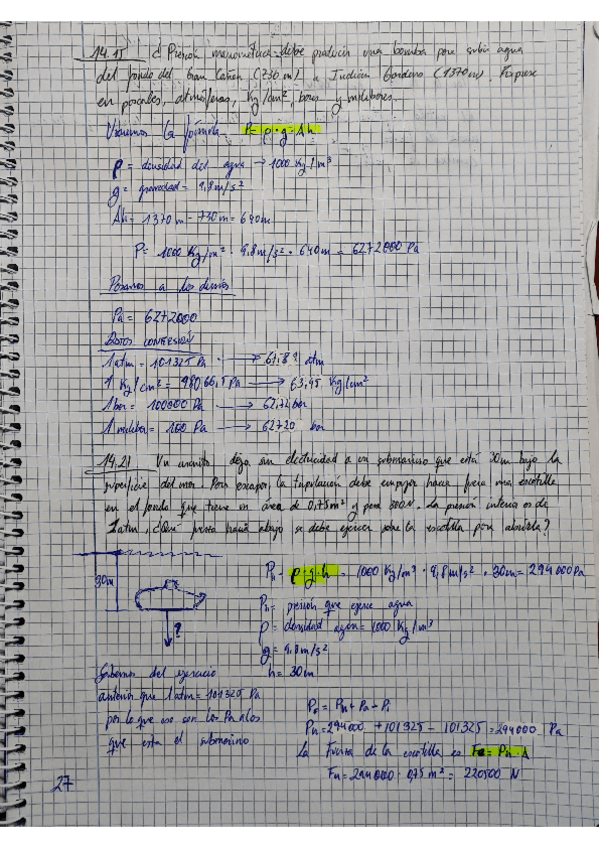 14.15 ¿ Presión manométrica debe producir una bomba para subir agua
del fondo del Gran Cañón (730 m) a Indian Gardens (1370 m). Exprese
en pascales, atmósferas, Kg/cm², bares y milibares.
Usaremos la fórmula P = ρ · g · Δh
ρ = densidad del agua → 1000 Kg/m³
g = gravedad = 9,8 m/s²
Δh = 1370 m - 730 m = 640 m
P = 1000 Kg/m³ · 9,8 m/s² · 640 m = 6272000 Pa
Pasamos a los demás
Pa = 6272000
DATOS CONVERSIÓN
1 atm = 101325 Pa → 61,89 atm
1 Kg/cm² = 98066,5 Pa → 63,95 Kg/cm²
1 bar = 100000 Pa → 62,72 bar
1 milibar = 100 Pa → 62720 bar
14.21 Un circuito deja sin electricidad a un submarino que está 30m bajo la
superficie del mar. Para escapar, la tripulación debe empujar hacia fuera una escotilla
en el fondo que tiene un área de 0,75 m² y pesa 300N. La presión interior es de
1 atm, ¿Qué fuerza hacia abajo se debe ejercer sobre la escotilla para abrirla?
30m
?
Ph = ρ · g · h = 1000 Kg/m³ · 9,8 m/s² · 30m = 294000 Pa
Ph = presión que ejerce agua
ρ = densidad agua = 1000 Kg/m³
g = 9.8 m/s²
h = 30m
Sabemos del ejercicio
anterior que 1 atm = 101325 Pa
por lo que eso son los Pa a los
que esta el submarino
Pe = Ph + Pa - Pi
Ph = 294000 + 101325 - 101325 = 294000 Pa
La Fuerza de la escotilla es Fe = Ph · A
Fh = 294000 · 0,75 m² = 220500 N
27